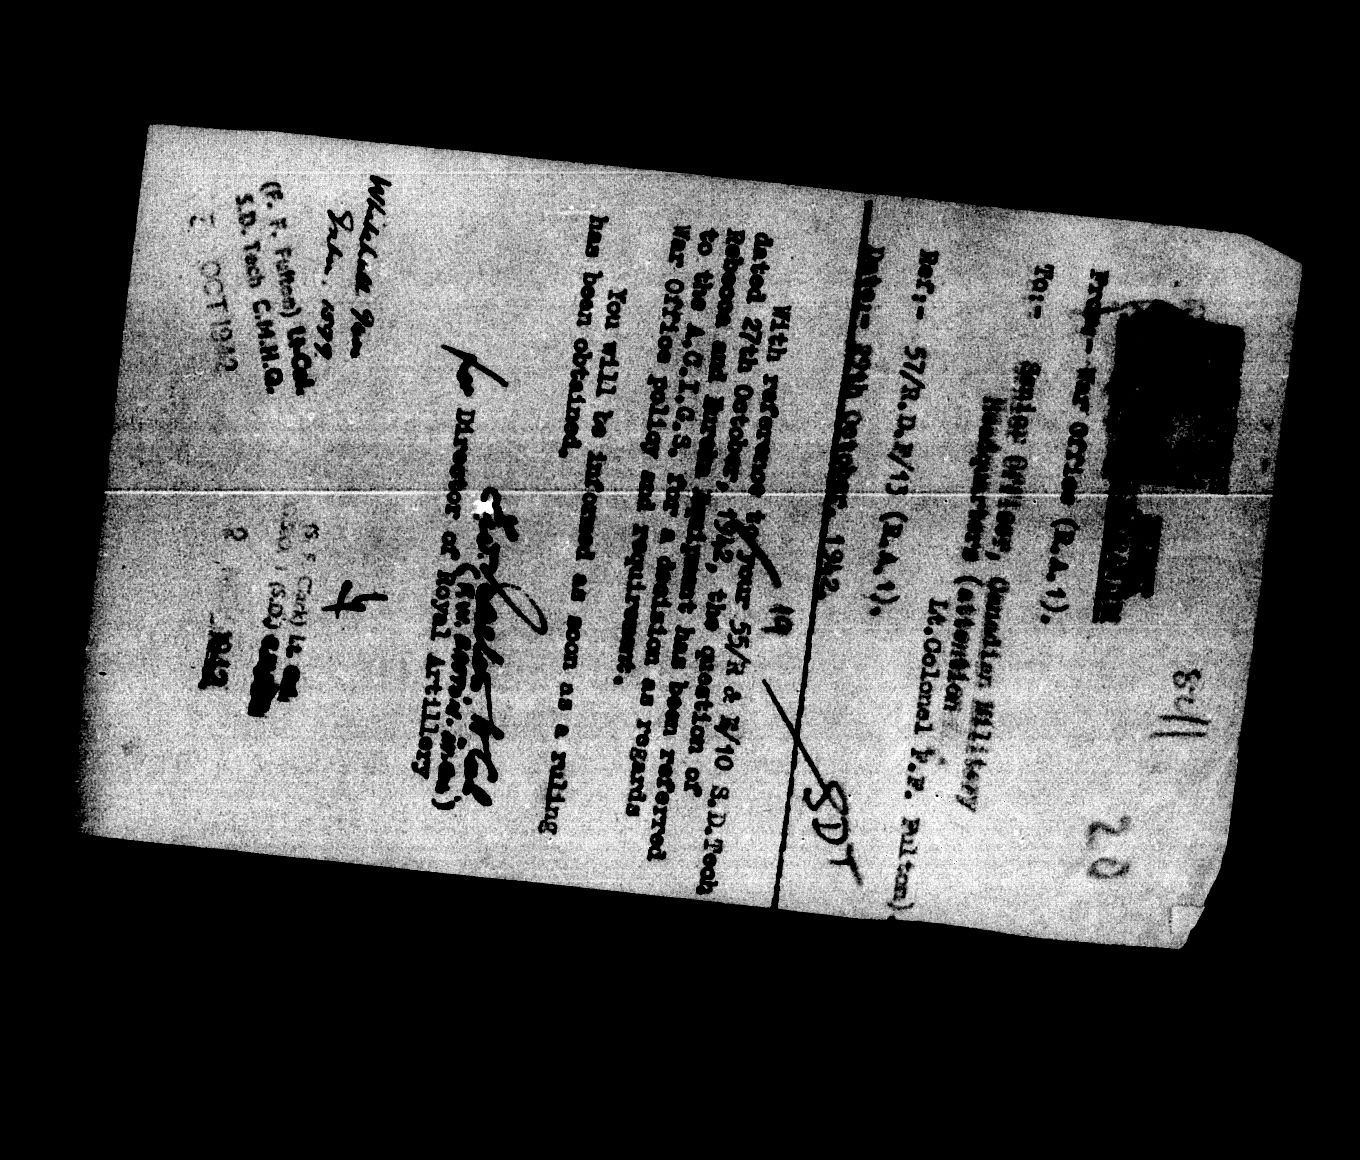 8-11
20
From:- War Office (R.A.1).
To:- Senior Officer, Canadian Military
Headquarters (attention
Lt.Colonel F.F. Fulton).
Ref:- 57/R.D.F/13 (R.A.1).
Date:- October, 1942.
SDT
19
With reference to your 55/R & E/10 S.D.Tech
dated 27th October, 1942, the question of
Rebecca and Eureka Equipment has been referred
to the A.C.I.G.S. for a decision as regards
War Office policy and requirement.
You will be informed as soon as a ruling
has been obtained.
for Director of Royal Artillery
(F. F. Fulton) Lt-Col
S.D. Tech C.M.H.Q.
OCT 1942
Lt
(S.D.)